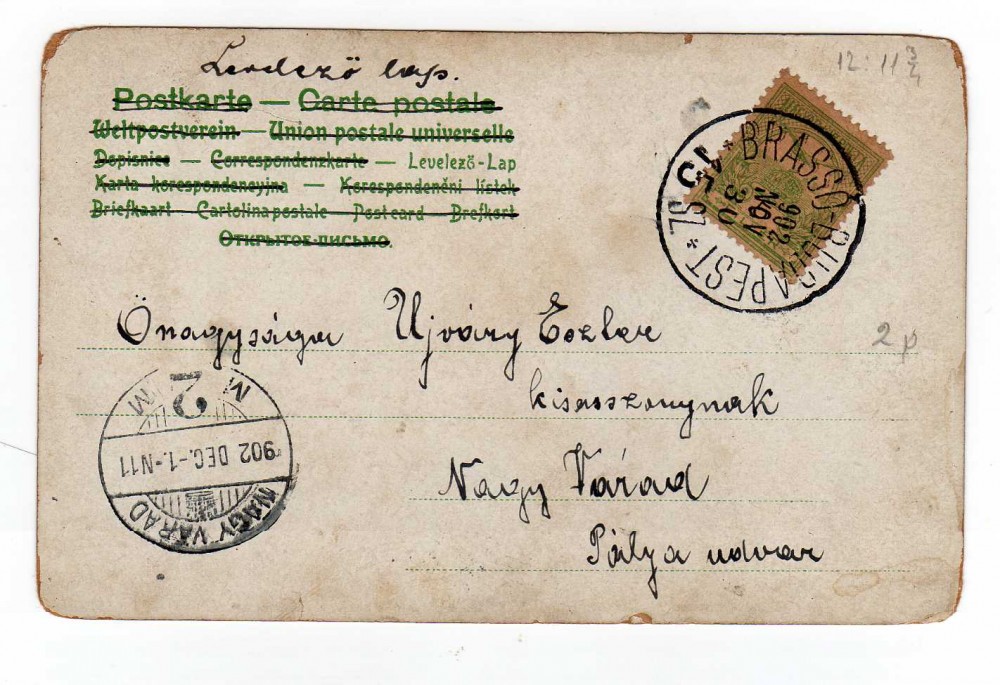 Levelező lap.
12. 11 3/4
Postkarte — Carte postale
Weltpostverein — Union postale universelle
Dopisnice — Correspondenzkarte — Levelező-Lap
Karta korespondencyjna — Korespondenční lístek
Briefkaart — Cartolina postale — Post card — Brefkort
Открытое письмо.
BRASSÓ-BUDAPEST
902
NOV
30
Önagysága Ujváry Eszter
2p
kisasszonynak
Nagy Várad
Pálya udvar
M 2 M
902 DEC.-1.-N11
NAGYVÁRAD